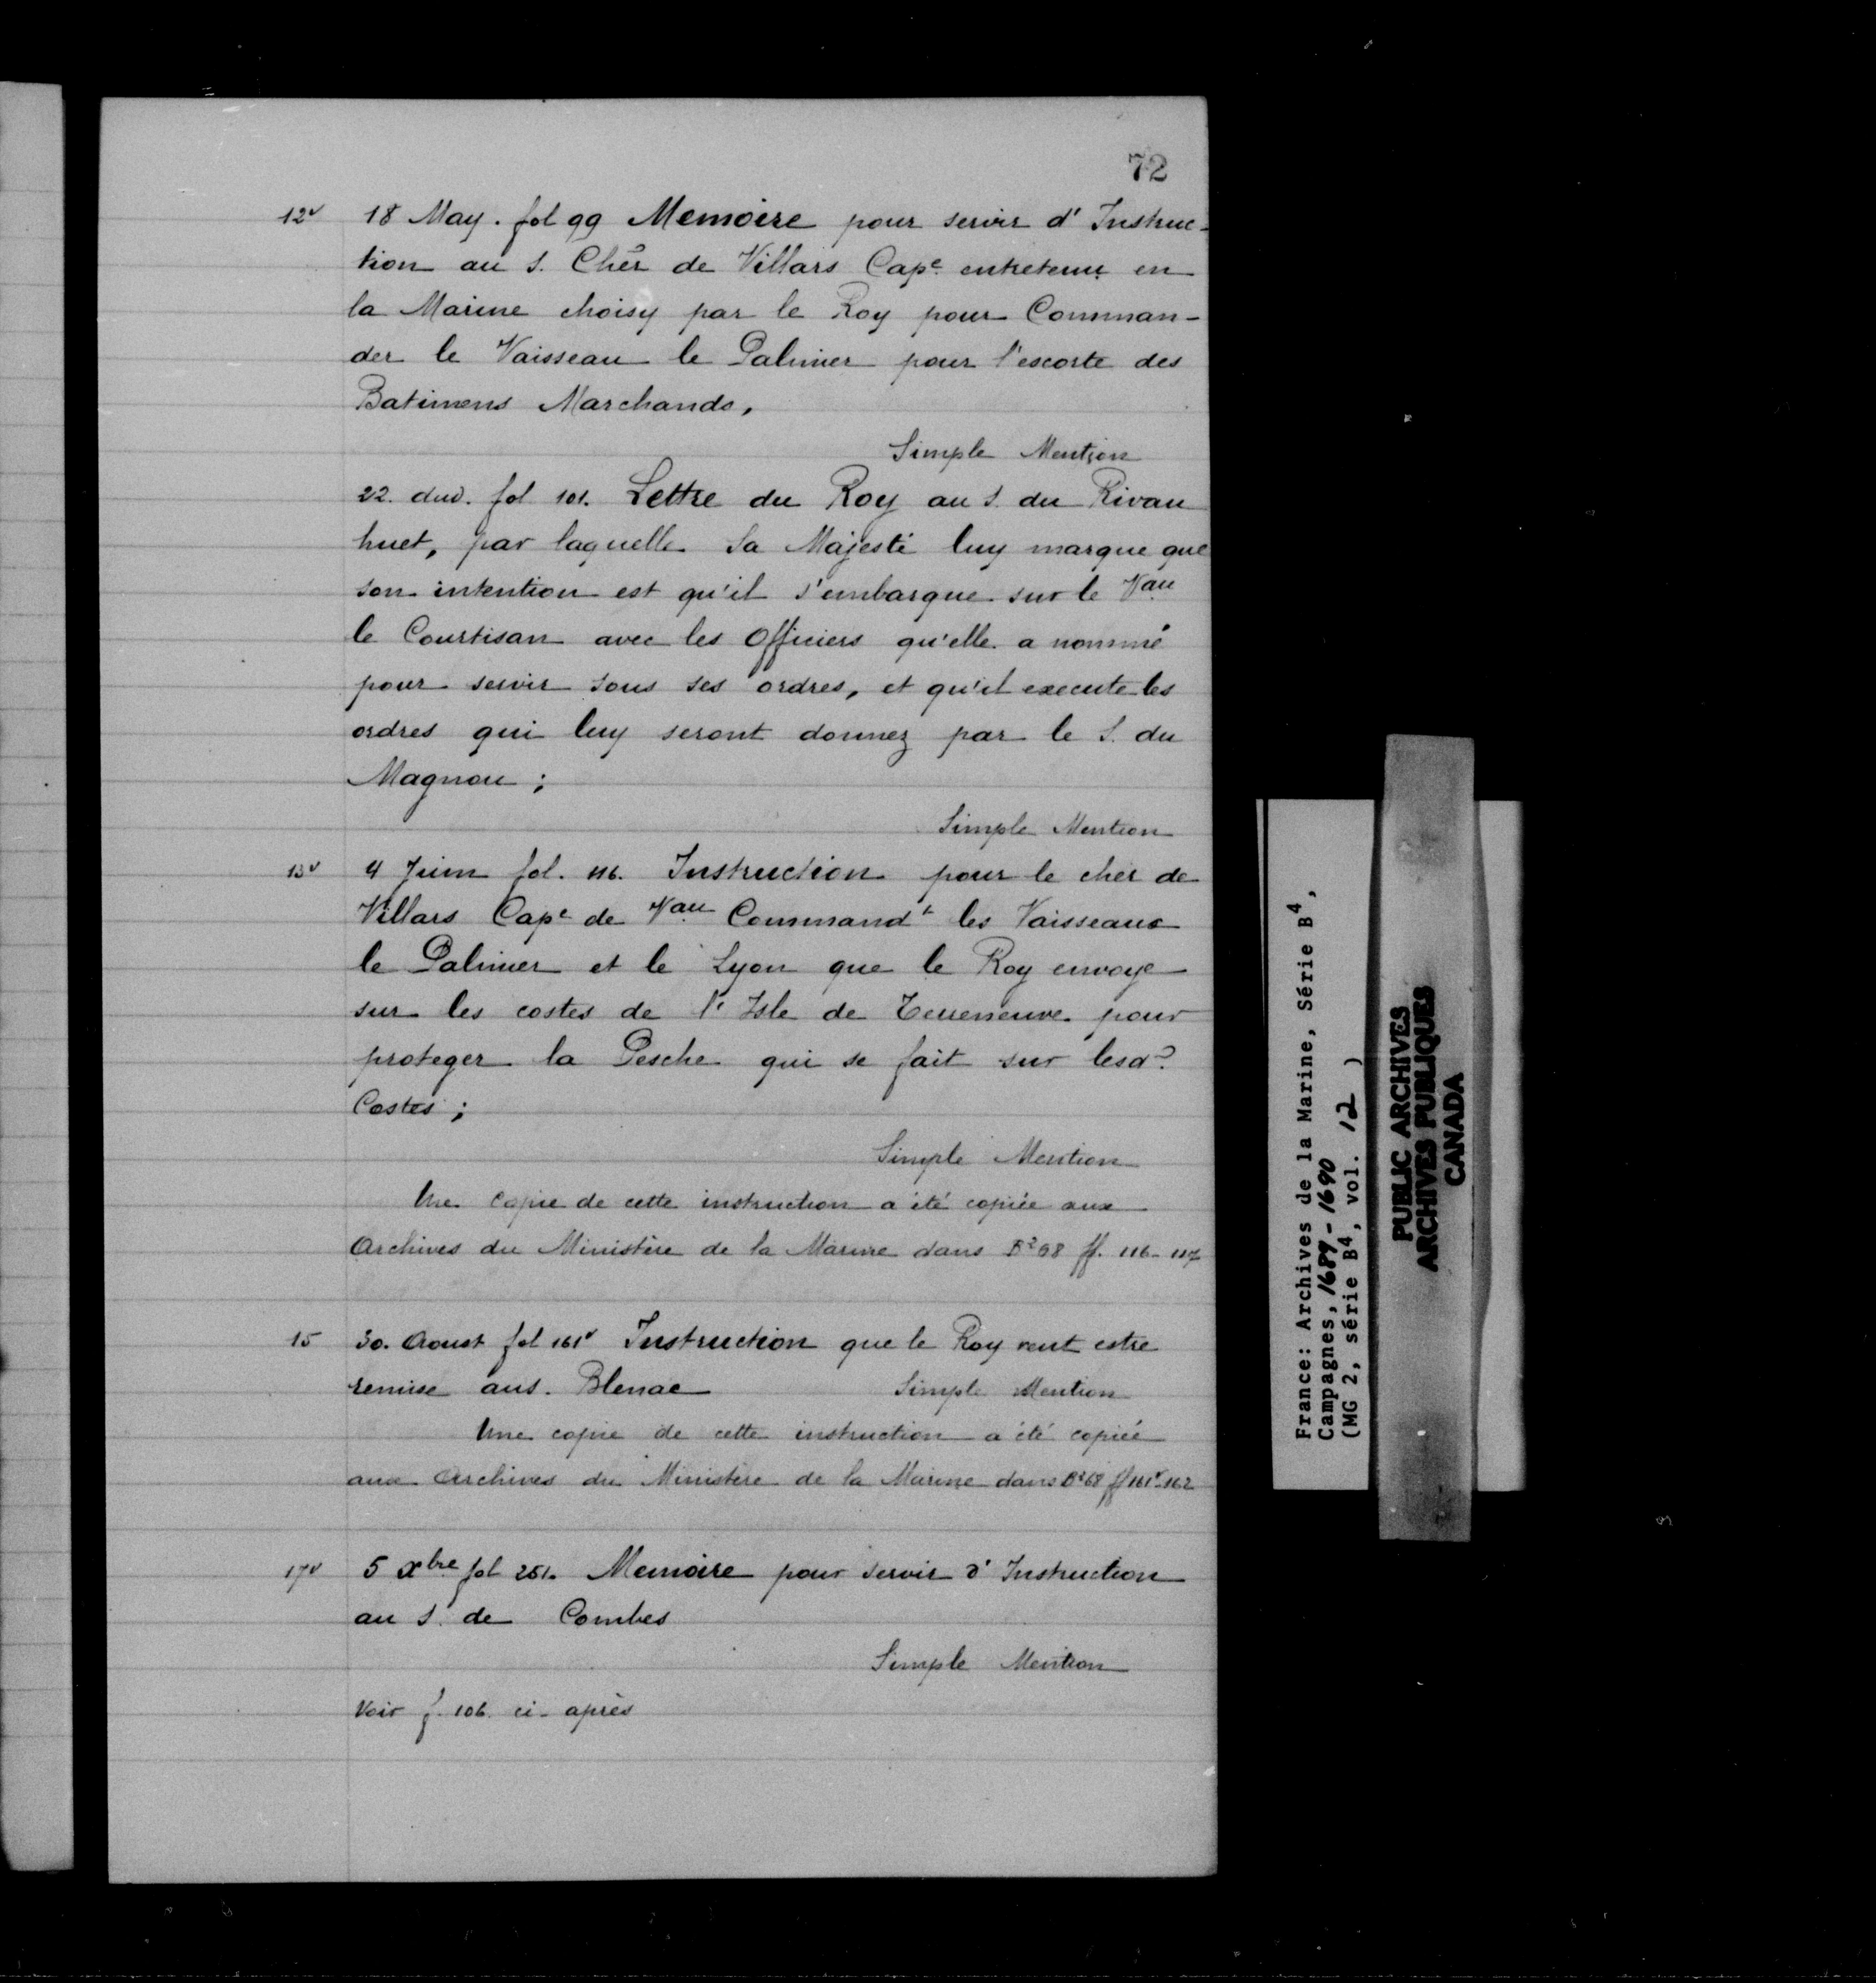 72
12v 18 May. fol 99 Memoire pour servir d'Instruc-
tion au S. Cher de Villars Cape entretenu en
la Marine choisy par le Roy pour Comman-
der le Vaisseau le Palmier pour l'escorte des
Batimens Marchands,
Simple Mention
22. dud. fol 101. Lettre du Roy au S. du Rivau
huet, par laquelle Sa Majesté luy marque que
son intention est qu'il s'embarque sur le Vau
le Courtisan avec les Officiers qu'elle a nommé
pour servir sous ses ordres, et qu'il execute les
ordres qui luy seront donnez par le S. du
Magnou ;
Simple Mention
13v 4 Juin fol. 116. Instruction pour le cher de
Villars Cape de Vau Commandt les Vaisseaux
le Palmier et le Lyon que le Roy envoye
sur les costes de l'Isle de Terreneuve pour
proteger la Pesche qui se fait sur lesd.
Costes ;
Simple Mention
Une copie de cette instruction a été copiée aux
Archives du Ministère de la Marine dans B2 68 ff. 116-117
15 30. Aoust fol 161v Instruction que le Roy veut estre
remise au s. Blenac Simple Mention
Une copie de cette instruction a été copiée
aux Archives du Ministère de la Marine dans B2 68 ff 161v-162
17v 5 xbre fol 251. Memoire pour servir d'Instruction
au S. de Combes
Simple Mention
Voir f. 106. ci-après
France: Archives de la Marine, Série B4,
Campagnes, 1689-1690
(MG 2, série B4, vol. 12 )
PUBLIC ARCHIVES
ARCHIVES PUBLIQUES
CANADA